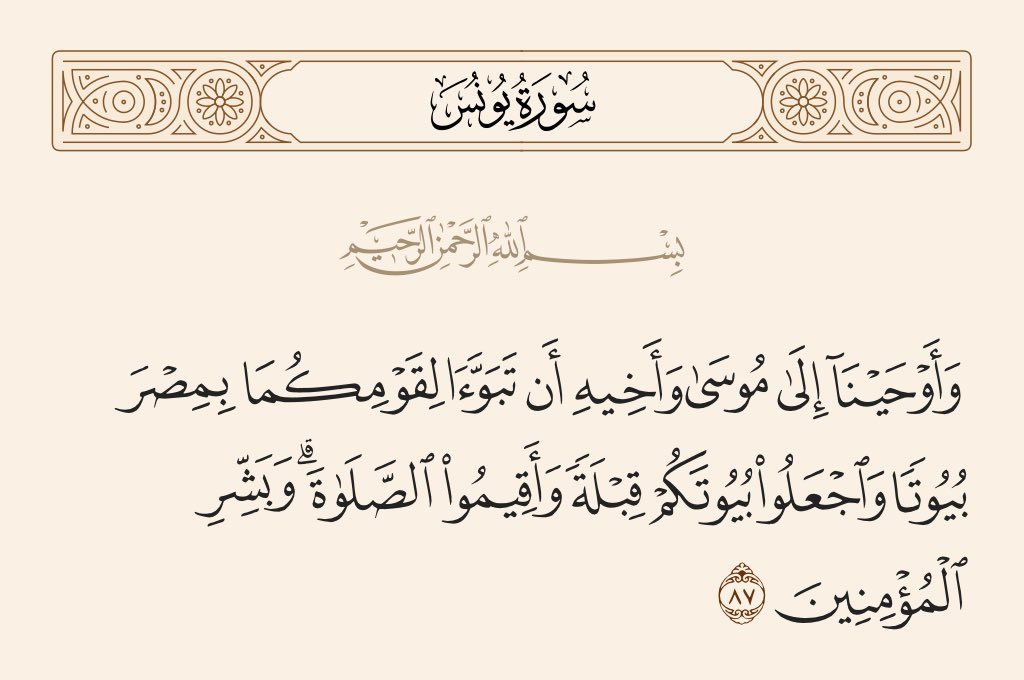 سُورَةُ يُونُسَ
بِسْمِ ٱللَّهِ ٱلرَّحْمَٰنِ ٱلرَّحِيمِ
وَأَوْحَيْنَآ إِلَىٰ مُوسَىٰ وَأَخِيهِ أَن تَبَوَّءَا لِقَوْمِكُمَا بِمِصْرَ
بُيُوتًا وَٱجْعَلُوا۟ بُيُوتَكُمْ قِبْلَةً وَأَقِيمُوا۟ ٱلصَّلَوٰةَ ۗ وَبَشِّرِ
ٱلْمُؤْمِنِينَ ٨٧